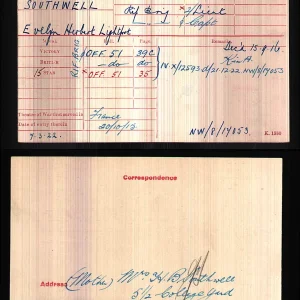 SOUTHWELL
Rif Brig
2/Lieut
" Capt
Evelyn Herbert Lightfoot
Dec'd 15.9.16.
VICTORY OFF 51 39C
BRITISH do do
15 STAR OFF 51 35
KinA.
IV x/2593 d/21.12.22 NW/8/17053.
Theatre of War first served in France
Date of entry therein
NW/8/17053 K. 1380
Correspondence
Address (Mother) Mrs H.B. Southwell
College Yard